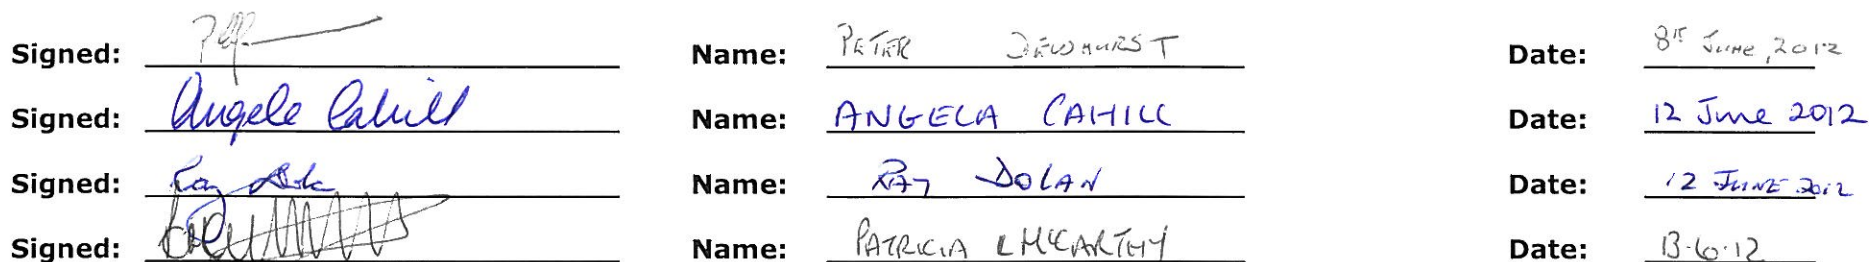 Signed: Name: PETER DEWHURST Date: 8th June, 2012
Signed: Angela Cahill Name: ANGELA CAHILL Date: 12 June 2012
Signed: Ray Name: RAY DOLAN Date: 12 JUNE 2012
Signed: Name: PATRICIA L MCCARTHY Date: 13.6.12